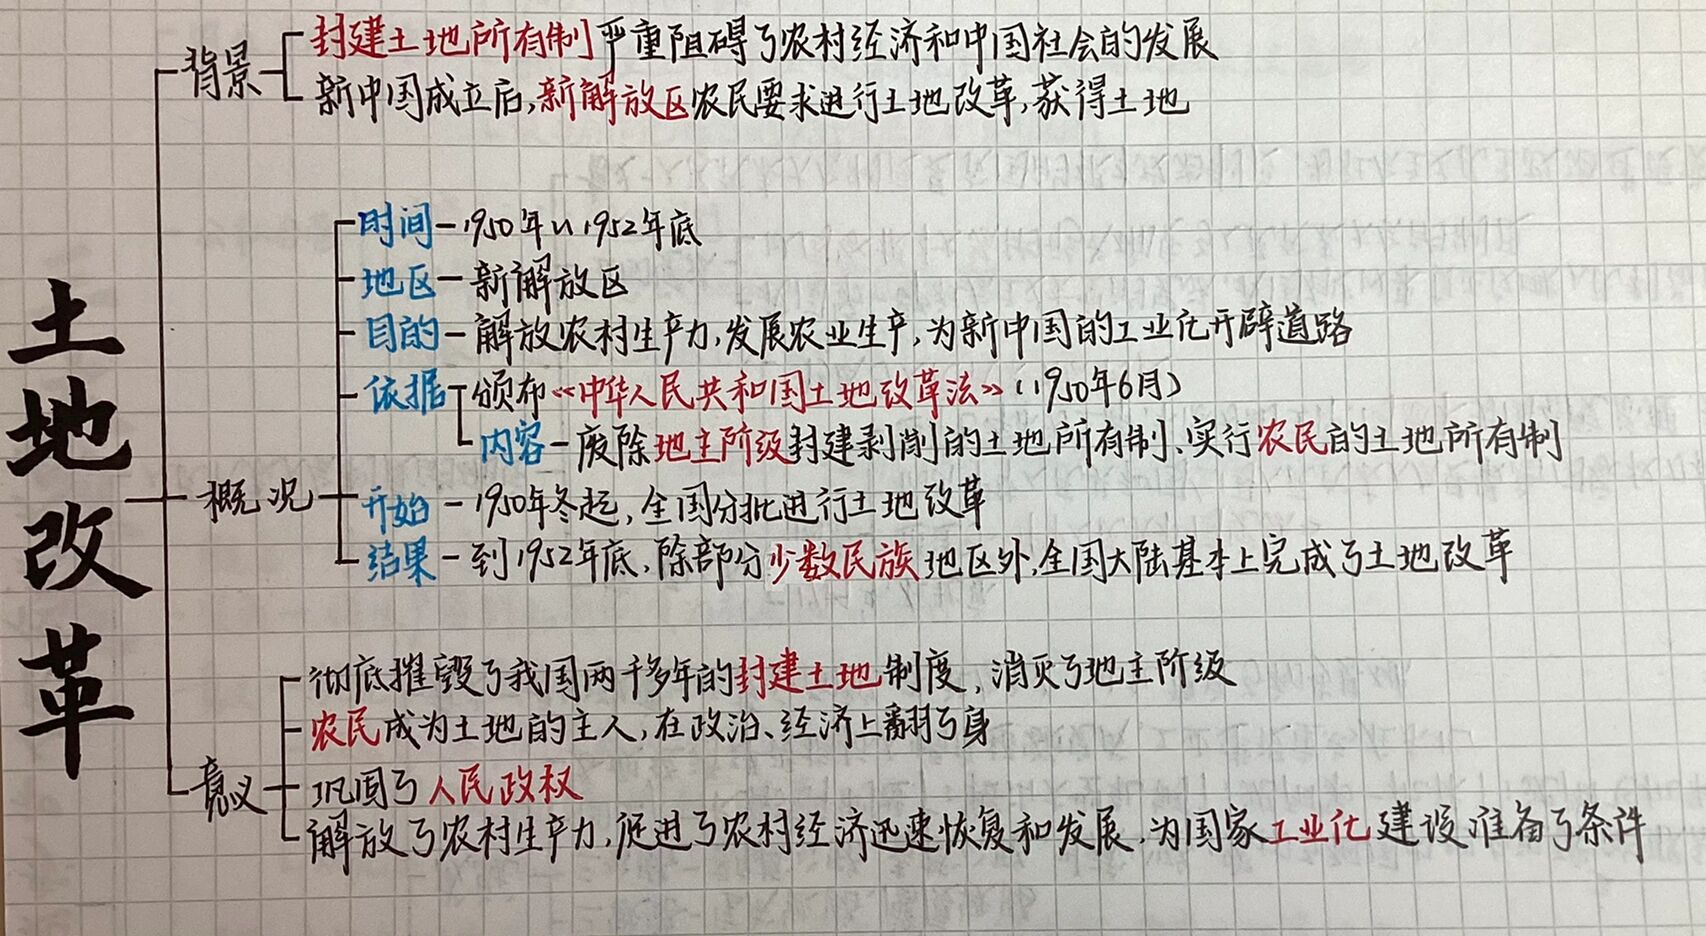 土地改革
背景
封建土地所有制严重阻碍了农村经济和中国社会的发展
新中国成立后,新解放区农民要求进行土地改革,获得土地
概况
时间-1950年~1952年底
地区-新解放区
目的-解放农村生产力,发展农业生产,为新中国的工业化开辟道路
依据 颁布《中华人民共和国土地改革法》(1950年6月)
内容-废除地主阶级封建剥削的土地所有制、实行农民的土地所有制
开始-1950年冬起,全国分批进行土地改革
结果-到1952年底,除部分少数民族地区外,全国大陆基本上完成了土地改革
意义
彻底摧毁了我国两千多年的封建土地制度,消灭了地主阶级
农民成为土地的主人,在政治、经济上翻了身
巩固了人民政权
解放了农村生产力,促进了农村经济迅速恢复和发展,为国家工业化建设准备了条件